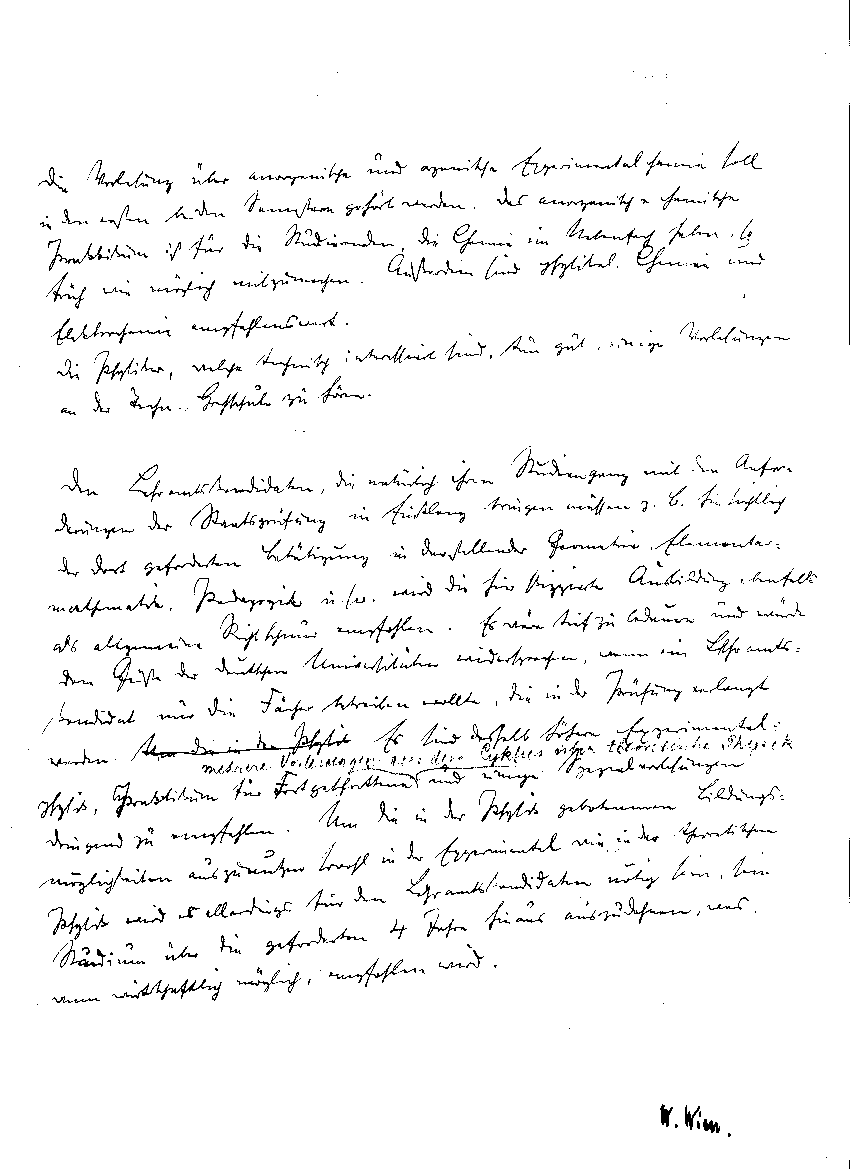 Die Vorlesung über anorganische und organische Experimentalchemie soll
in den ersten beiden Semestern gehört werden. Das anorganisch-chemische
Praktikum ist für die Studierenden, die Chemie im Nebenfach haben, so
früh wie möglich mitzumachen. Außerdem sind physikal. Chemie und
Elektrochemie empfehlenswert.
Die Physiker, welche technisch interessiert sind, tun gut, einige Vorlesungen
an der Techn. Hochschule zu hören.
Den Lehramtskandidaten, die natürlich ihren Studiengang mit den Anfor-
derungen der Staatsprüfung in Einklang bringen müssen z. B. hinsichtlich
der dort geforderten Betätigung in darstellender Geometrie, Elementar-
mathematik, Pädagogik u.s.w. wird die hier skizzierte Ausbildung ebenfalls
als allgemeine Richtschnur empfohlen. Es wäre tief zu bedauern und würde
dem Geiste der deutschen Universitäten widersprechen, wenn ein Lehramts-
kandidat nur die Fächer betreiben wollte, die in der Prüfung verlangt
werden. Um die in der Physik Es sind deshalb höhere Experimental-
mehrere Vorlesungen aus dem Cyklus über theoretische Physik
physik, Praktikum für Fortgeschrittene und einige Spezialvorlesungen
dringend zu empfehlen. Um die in der Physik gebotenen Bildungs-
möglichkeiten auszunutzen sowohl in der Experimental wie in der theoretischen
Physik wird es allerdings für den Lehramtskandidaten nötig sein, sein
Studium über die geforderten 4 Jahre hinaus auszudehnen, was,
wenn wirtschaftlich möglich, empfohlen wird.
W. Wien.